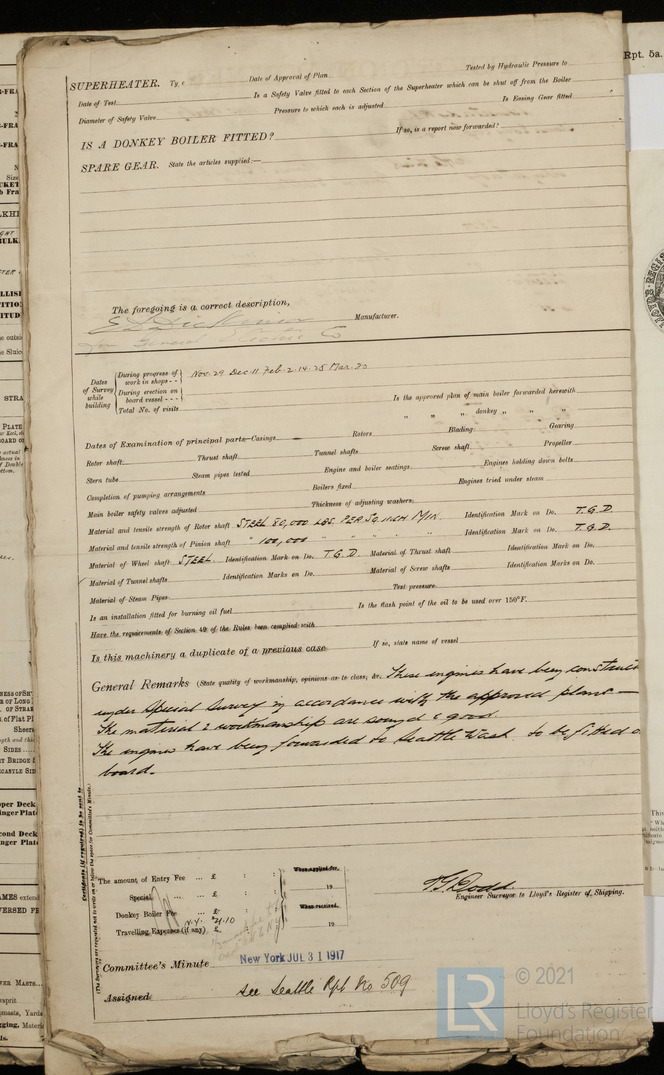 Rpt. 5a.
SUPERHEATER. Type Date of Approval of Plan Tested by Hydraulic Pressure to
Date of Test Is a Safety Valve fitted to each Section of the Superheater which can be shut off from the Boiler
Diameter of Safety Valve Pressure to which each is adjusted Is Easing Gear fitted
IS A DONKEY BOILER FITTED? If so, is a report now forwarded?
SPARE GEAR. State the articles supplied:—
The foregoing is a correct description,
Manufacturer.
for General Electric Co
Dates of Survey while building
During progress of work in shops - - Nov. 29 Dec. 11 Feb. 2. 14. 25 Mar. 20
During erection on board vessel - - -
Total No. of visits
Is the approved plan of main boiler forwarded herewith
" " " donkey " " "
Dates of Examination of principal parts—Casings Rotors Blading Gearing
Rotor shaft Thrust shaft Tunnel shafts Screw shaft Propeller
Stern tube Steam pipes tested Engine and boiler seatings Engines holding down bolts
Completion of pumping arrangements Boilers fixed Engines tried under steam
Main boiler safety valves adjusted Thickness of adjusting washers
Material and tensile strength of Rotor shaft STEEL 80,000 LBS. PER SQ INCH MIN. Identification Mark on Do. T.G.D.
Material and tensile strength of Pinion shaft " 100,000 " " " " " Identification Mark on Do. T.G.D.
Material of Wheel shaft STEEL. Identification Mark on Do. T.G.D. Material of Thrust shaft Identification Mark on Do.
Material of Tunnel shafts Identification Marks on Do. Material of Screw shafts Identification Marks on Do.
Material of Steam Pipes Test pressure
Is an installation fitted for burning oil fuel Is the flash point of the oil to be used over 150°F.
Have the requirements of Section 49 of the Rules been complied with
Is this machinery a duplicate of a previous case If so, state name of vessel
General Remarks (State quality of workmanship, opinions as to class, &c. These engines have been construct
under special survey in accordance with the approved plans —
The material & workmanship are sound & good.
The engines have been forwarded to Seattle Wash to be fitted o
board.
Certificate (if required) to be sent to
(The Surveyors are requested not to write on or below the space for Committee's Minute.)
The amount of Entry Fee ... £ : : When applied for,
Special ... £ : : 19
Donkey Boiler Fee ... £ : : When received,
Travelling Expenses (if any) £ $21.10 19
T G Dodd
Engineer Surveyor to Lloyd's Register of Shipping.
Committee's Minute New York JUL 31 1917
Assigned See Seattle Rpt No 509
LR © 2021
Lloyd's Register
Foundation